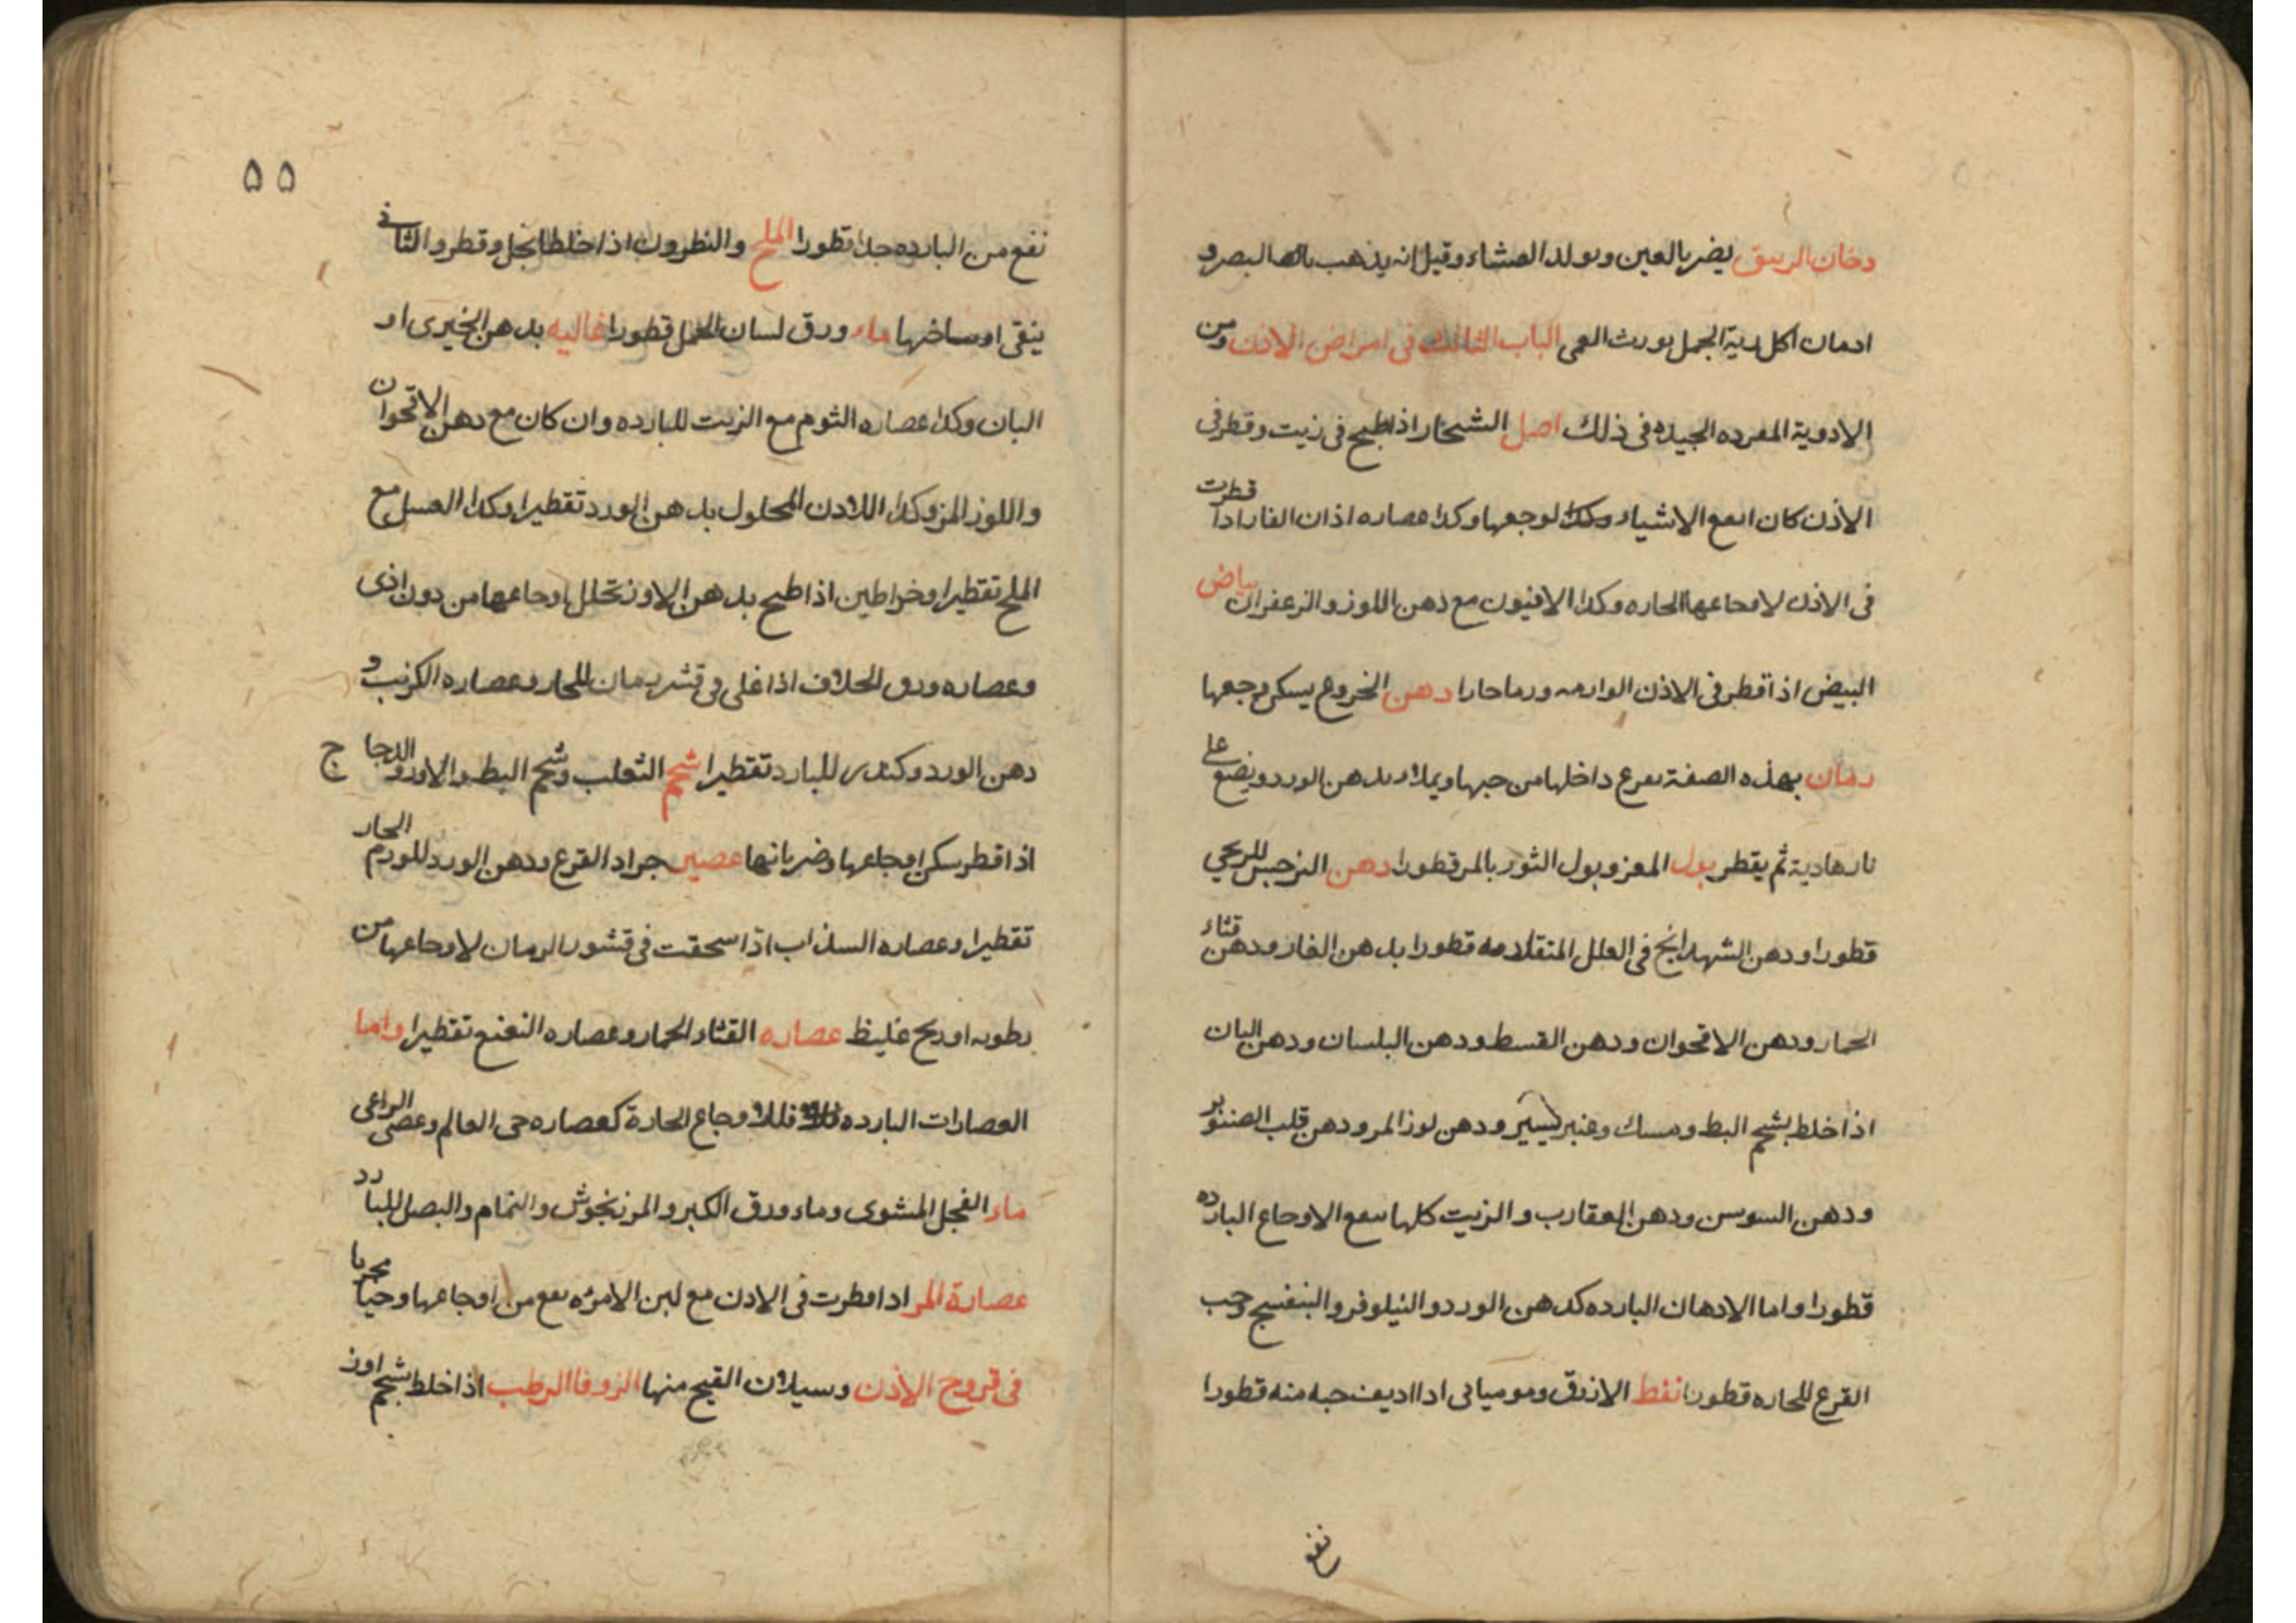 دخان الزيبق يضر بالعين ويولد العشاء وقيل انه يذهب بالبصر و
ادمان اكل رية الجمل يورث العمى الباب الثالث فى امراض الاذن ومن
الادوية المفرده الجيده فى ذلك اصل الشنجار اذا طبخ فى زيت وقطر فى
الاذن كان انفع الاشياء لوجعها وكذا عصاره اذان الفار اذا قطرت
فى الاذن لاوجاعها الحاره وكذا الافيون مع دهن اللوز والزعفران بياض
البيض اذا قطر فى الاذن الوارمه ورما حارا دهن الخروع يسكن وجعها
رمان بهذه الصفة يفرغ داخلها من حبها ويملاء بدهن الورد ويضع على
نار هادية ثم يقطر بول المعز وبول الثور بالمر قطورا دهن النرجس للريحي
قطورا ودهن الشهدانج فى العلل المتقادمه قطورا بدهن الغار ودهن قثاء
الحمار ودهن الاقحوان ودهن القسط ودهن البلسان ودهن البان
اذا خلط بشحم البط ومسك وعنبر يسير ودهن لوز المر ودهن قلب الصنوبر
ودهن السوسن ودهن العقارب والزيت كلها ينفع الاوجاع البارده
قطورا واما الادهان البارده كدهن الورد والنيلوفر والبنفسج وحب
القرع للحاره قطورا نفط الازرق وموميائى اذا اديف حبه منه قطورا
نفع
٥٥
نفع من البارده جدا قطورا الملح والنطرون اذا خلطا بخل وقطر والثافى
ينقى اوساخها ماء ورق لسان الحمل قطورا غاليه بدهن الخيرى او
البان وكذا عصاره الثوم مع الزيت للبارده وان كان مع دهن الاقحوان
واللوز المر وكذا اللادن المحلول بدهن الورد تقطيرا وكذا العسل مع
الملح تقطيرا وخراطين اذا طبخ بدهن الاوز تحلل اوجاعها من دون اذى
وعصاره ورق الخلاف اذا غلى فى قشر رمان للحار وعصاره الكرنب و
دهن الورد وكندر للبارد تقطيرا شحم الثعلب وشحم البط والاوز والدجاج
اذا قطر سكن اوجاعها وضربانها عصير جراد القرع ودهن الورد للورم الحار
تقطيرا وعصاره السذاب اذا سحقت فى قشور الرمان لاوجاعها من
رطوبه او ريح غليظ عصاره القثاء الحمار وعصاره النعنع تقطيرا واما
العصارات البارده فللاوجاع الحارة كعصاره حى العالم وعصى الراعى
ماء الفجل المشوى وماء ورق الكبر والمرزنجوش والنمام والبصل للبارد
عصارة المر اذا قطرت فى الاذن مع لبن الامرءه نفع من اوجاعها وحيا مجربا
فى قروح الاذن وسيلان القيح منها الزوفا الرطب اذا خلط بشحم اوز